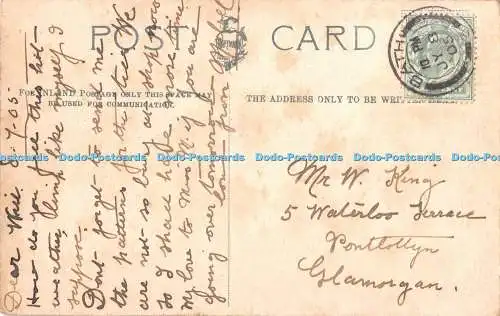 POST CARD
FOR INLAND POSTAGE ONLY THIS SPACE MAY
BE USED FOR COMMUNICATION.
THE ADDRESS ONLY TO BE WRITTEN
BATH
Dear Will. 8.7.05.
How do you like this hot
weather, fling like myself I
suppose.
Dont forget to send me
the patterns for the ties. We
are not so busy at shop now
so I shall have more time.
My love to Miss M if you are
going over tomorrow.
love from
Mr W. King
5 Waterloo Terrace
Pontlottyn
Glamorgan.
Dodo-Postcards Dodo-Postcards Dodo-Postcards Dodo-Postcards